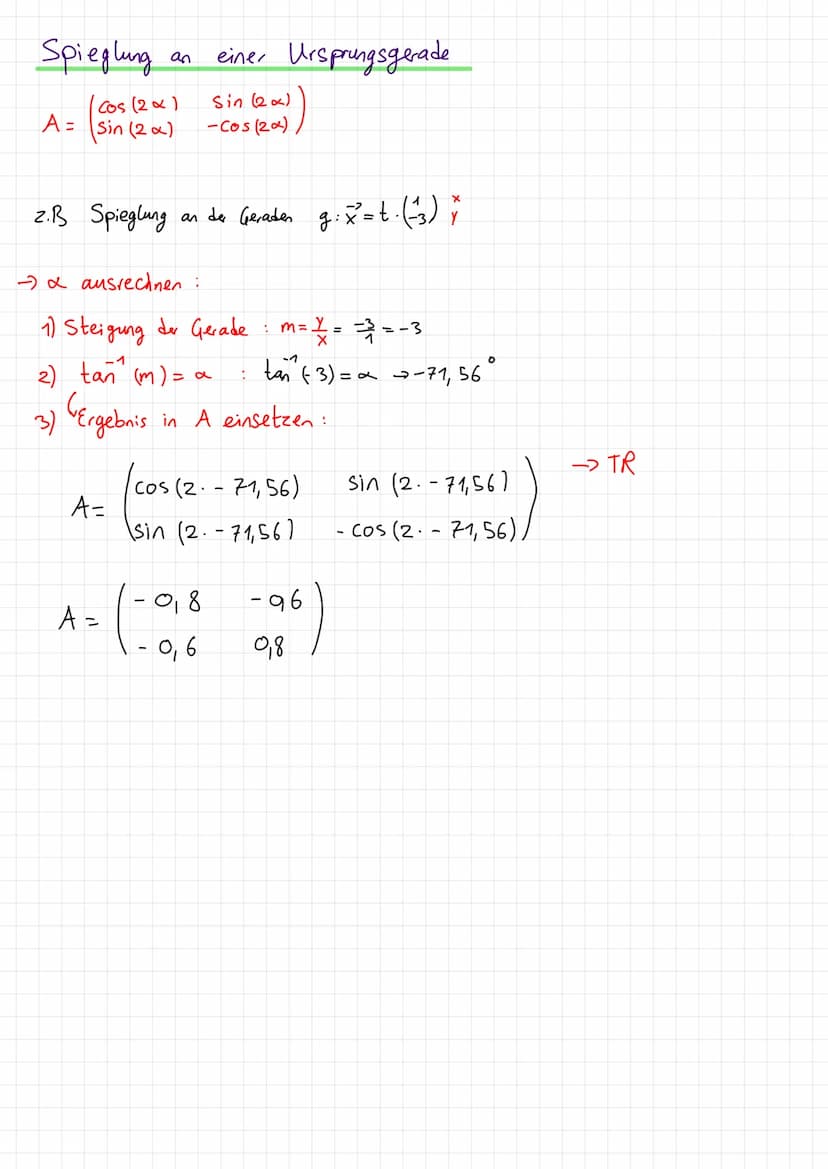 Spieglung an einer Ursprungsgerade
A = (cos(2α) sin(2α))
(sin(2α) -cos(2α))
z.B Spieglung an der Geraden g: x⃗ = t · (1 -3) x y
→ α ausrechnen :
1) Steigung der Gerade : m = y/x = -3/1 = -3
2) tan⁻¹ (m) = α : tan⁻¹(-3) = α → -71,56°
3) Ergebnis in A einsetzen :
A = (cos(2· - 71,56) sin (2· - 71,56)) → TR
(sin (2· - 71,56) - cos(2· - 71,56))
A = (-0,8 -0,6)
(-0,6 0,8)